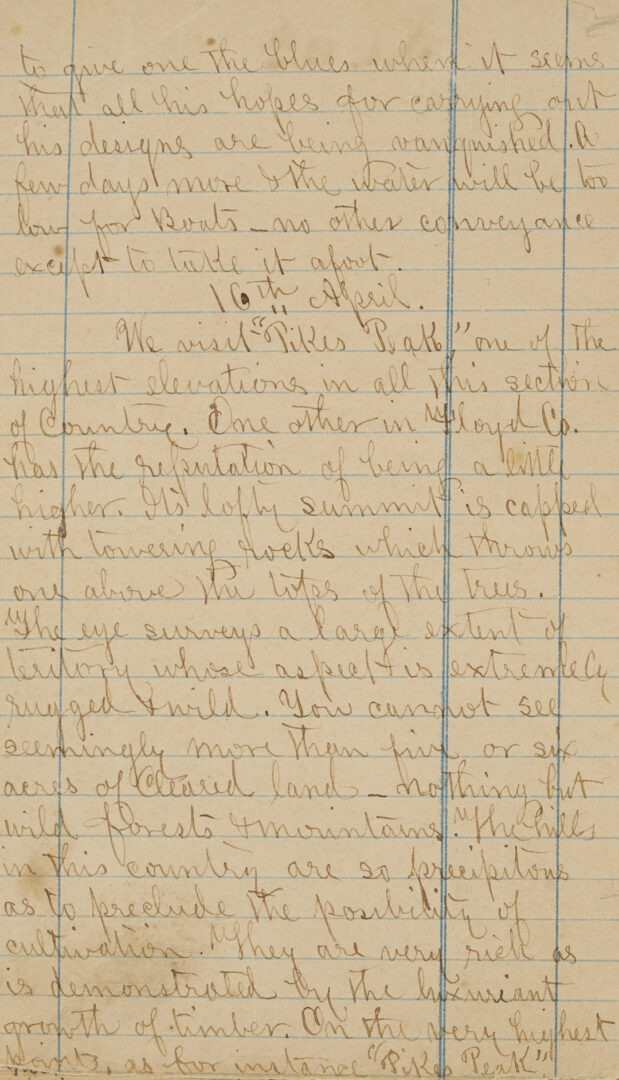 to give one the blues when it seems
that all his hopes for carrying out
his designs are being vanquished. A
few days more & the water will be too
low for Boats – no other conveyance
except to take it afoot.
16th April.
We visit "Pikes Peak," one of the
highest elevations in all this section
of Country. One other in Floyd Co.
has the reputation of being a little
higher. Its lofty summit is capped
with towering rocks which throws
one above the tops of the trees.
The eye surveys a large extent of
teritory whose aspect is extremely
rugged & wild. You cannot see
seemingly more than five or six
acres of Cleared land – nothing but
wild forests & mountains. The hills
in this country are so precipitous
as to preclude the possibility of
cultivation. They are very rich as
is demonstrated by the luxuriant
growth of timber. On the very highest
points, as for instance "Pikes Peak"